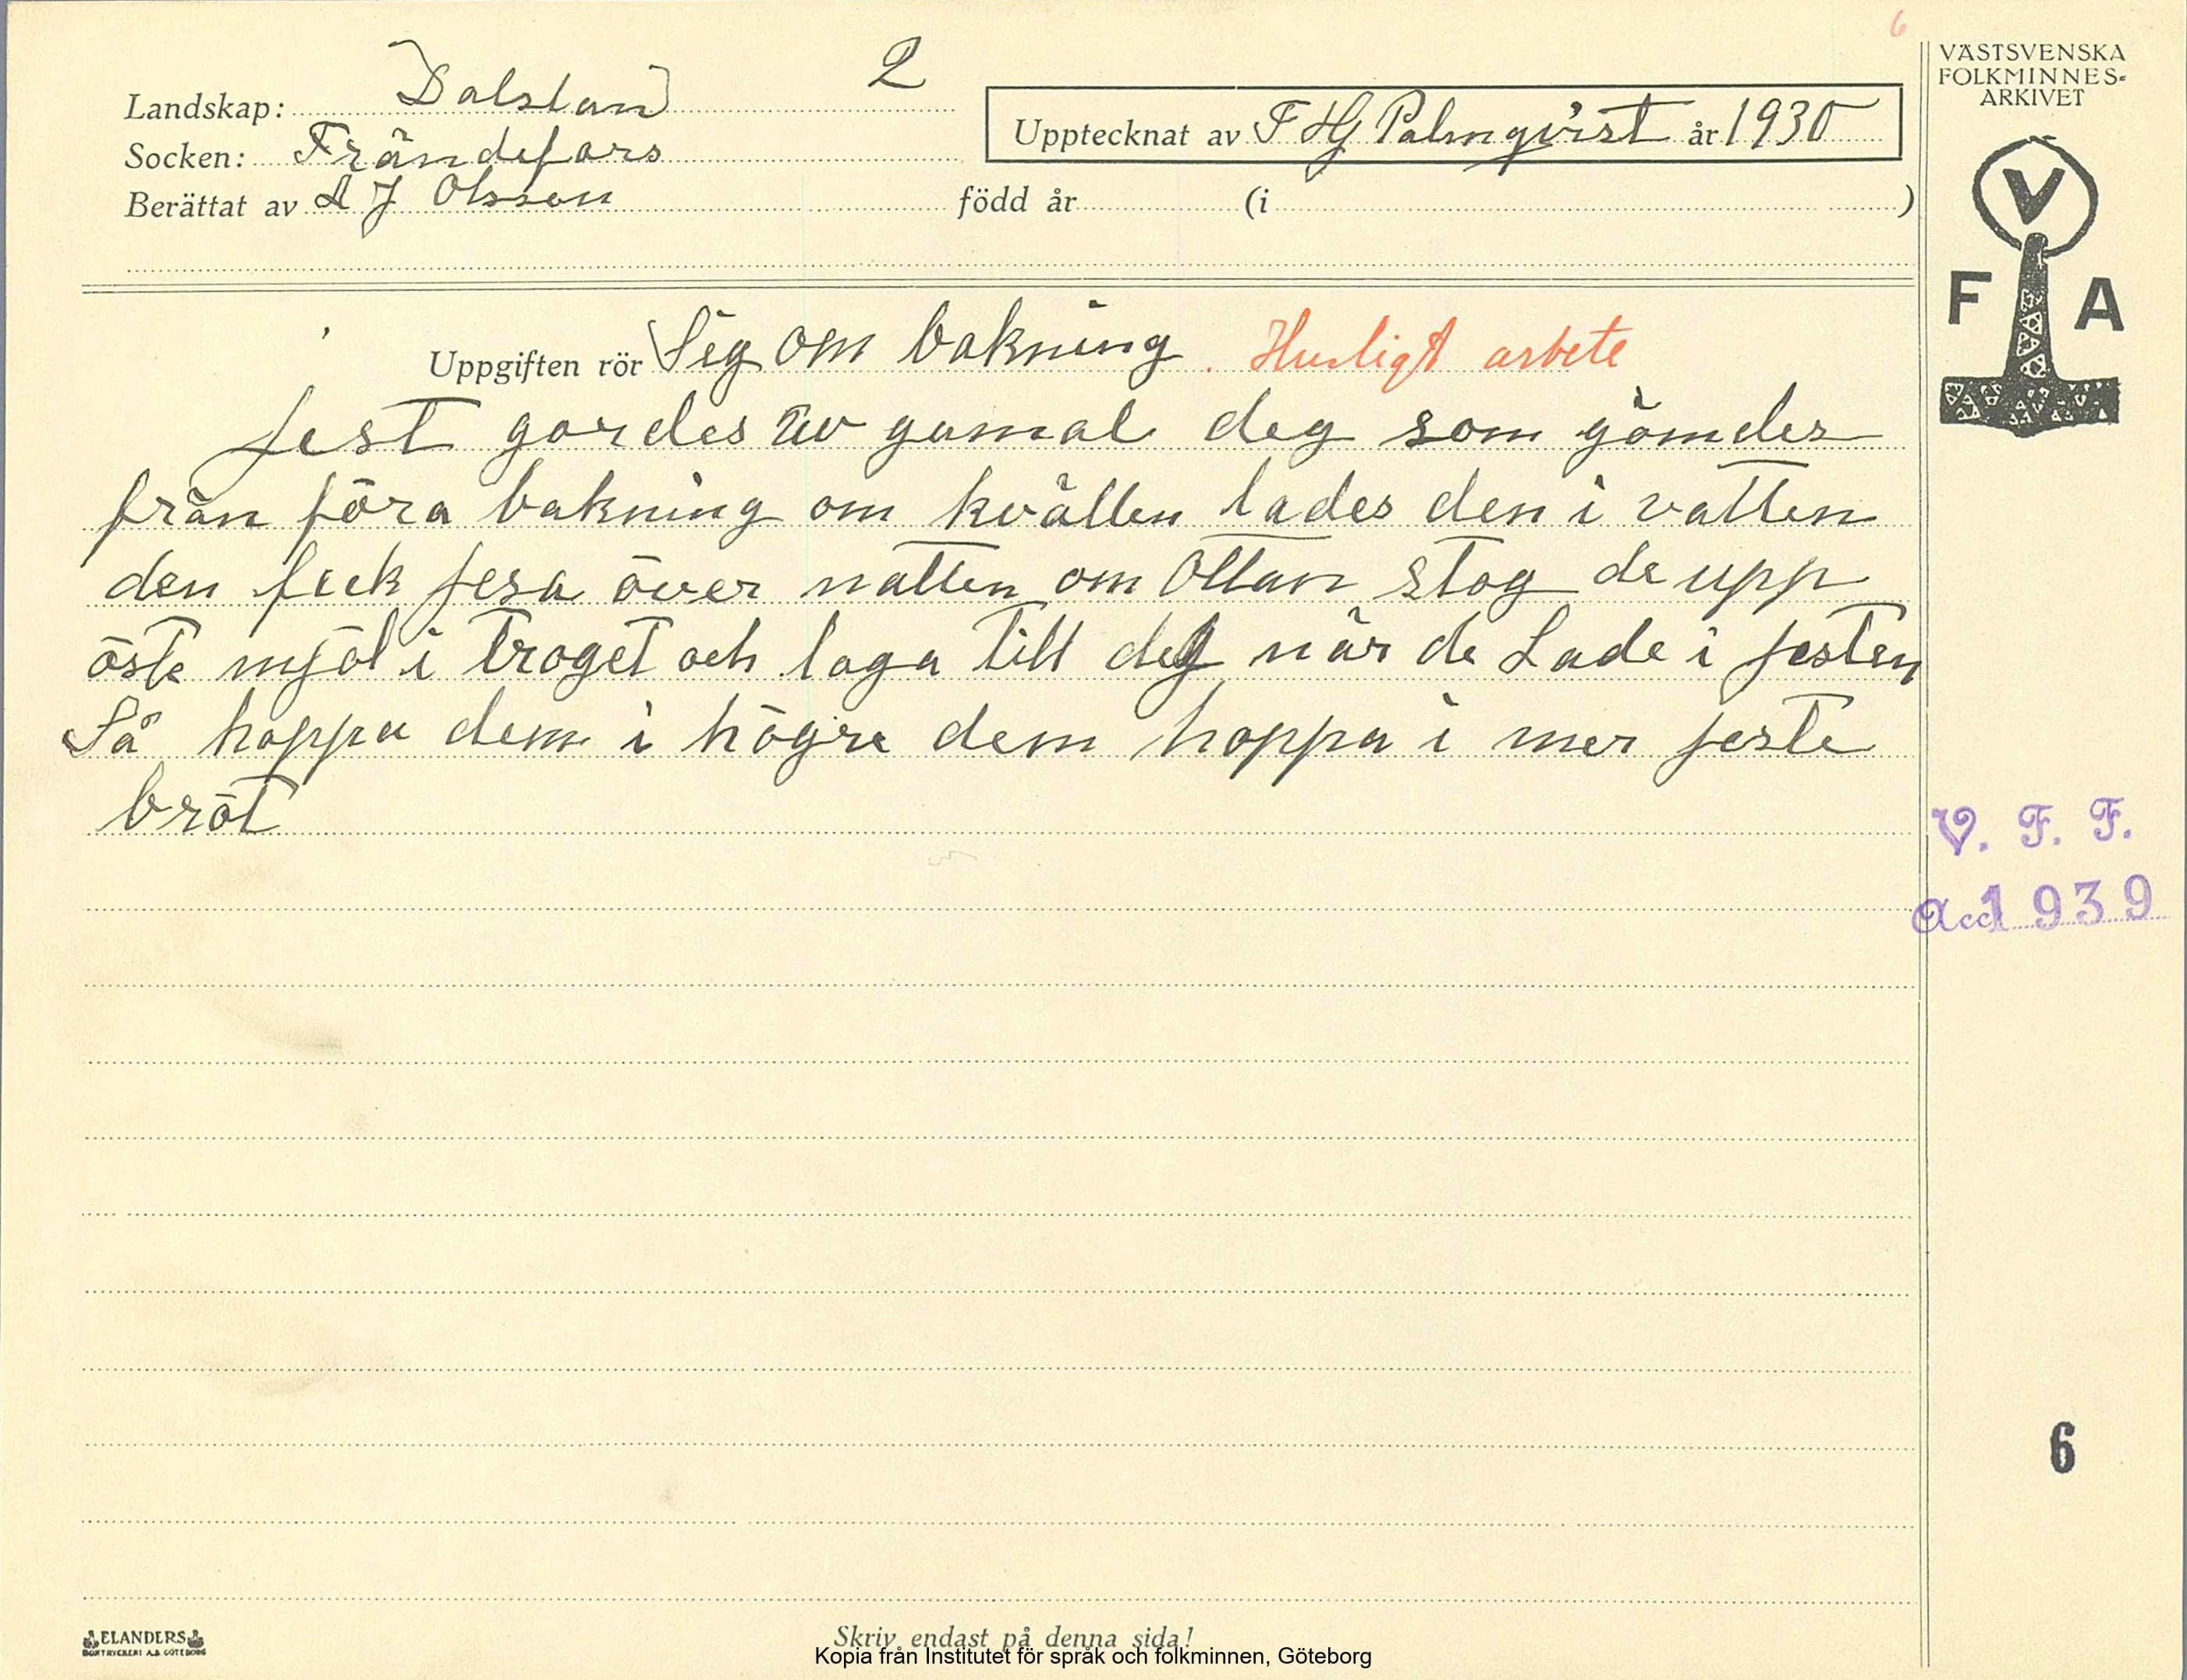 6
VÄSTSVENSKA
FOLKMINNES-
ARKIVET
2
Landskap: Dalsland
Socken: Frändefors
Upptecknat av F Hj Palmqvist år 1930
Berättat av A J Olsson född år (i )
V
F A
Uppgiften rör Seg om bakning. Husligt arbete
jest gordes av gamal deg som gömdes
från föra bakning om kvällen lades den i vatten
den feck jesa över natten om Ottan stog de upp
öste mjöl i troget och laga till deg når de Lade i jesten
Så hoppa dem i högre dem hoppa i mer jeste
bröt
V. F. F.
Acc 1939
6
ELANDERS
BOKTRYCKERI A.B. GÖTEBORG
Skriv endast på denna sida!
Kopia från Institutet för språk och folkminnen, Göteborg